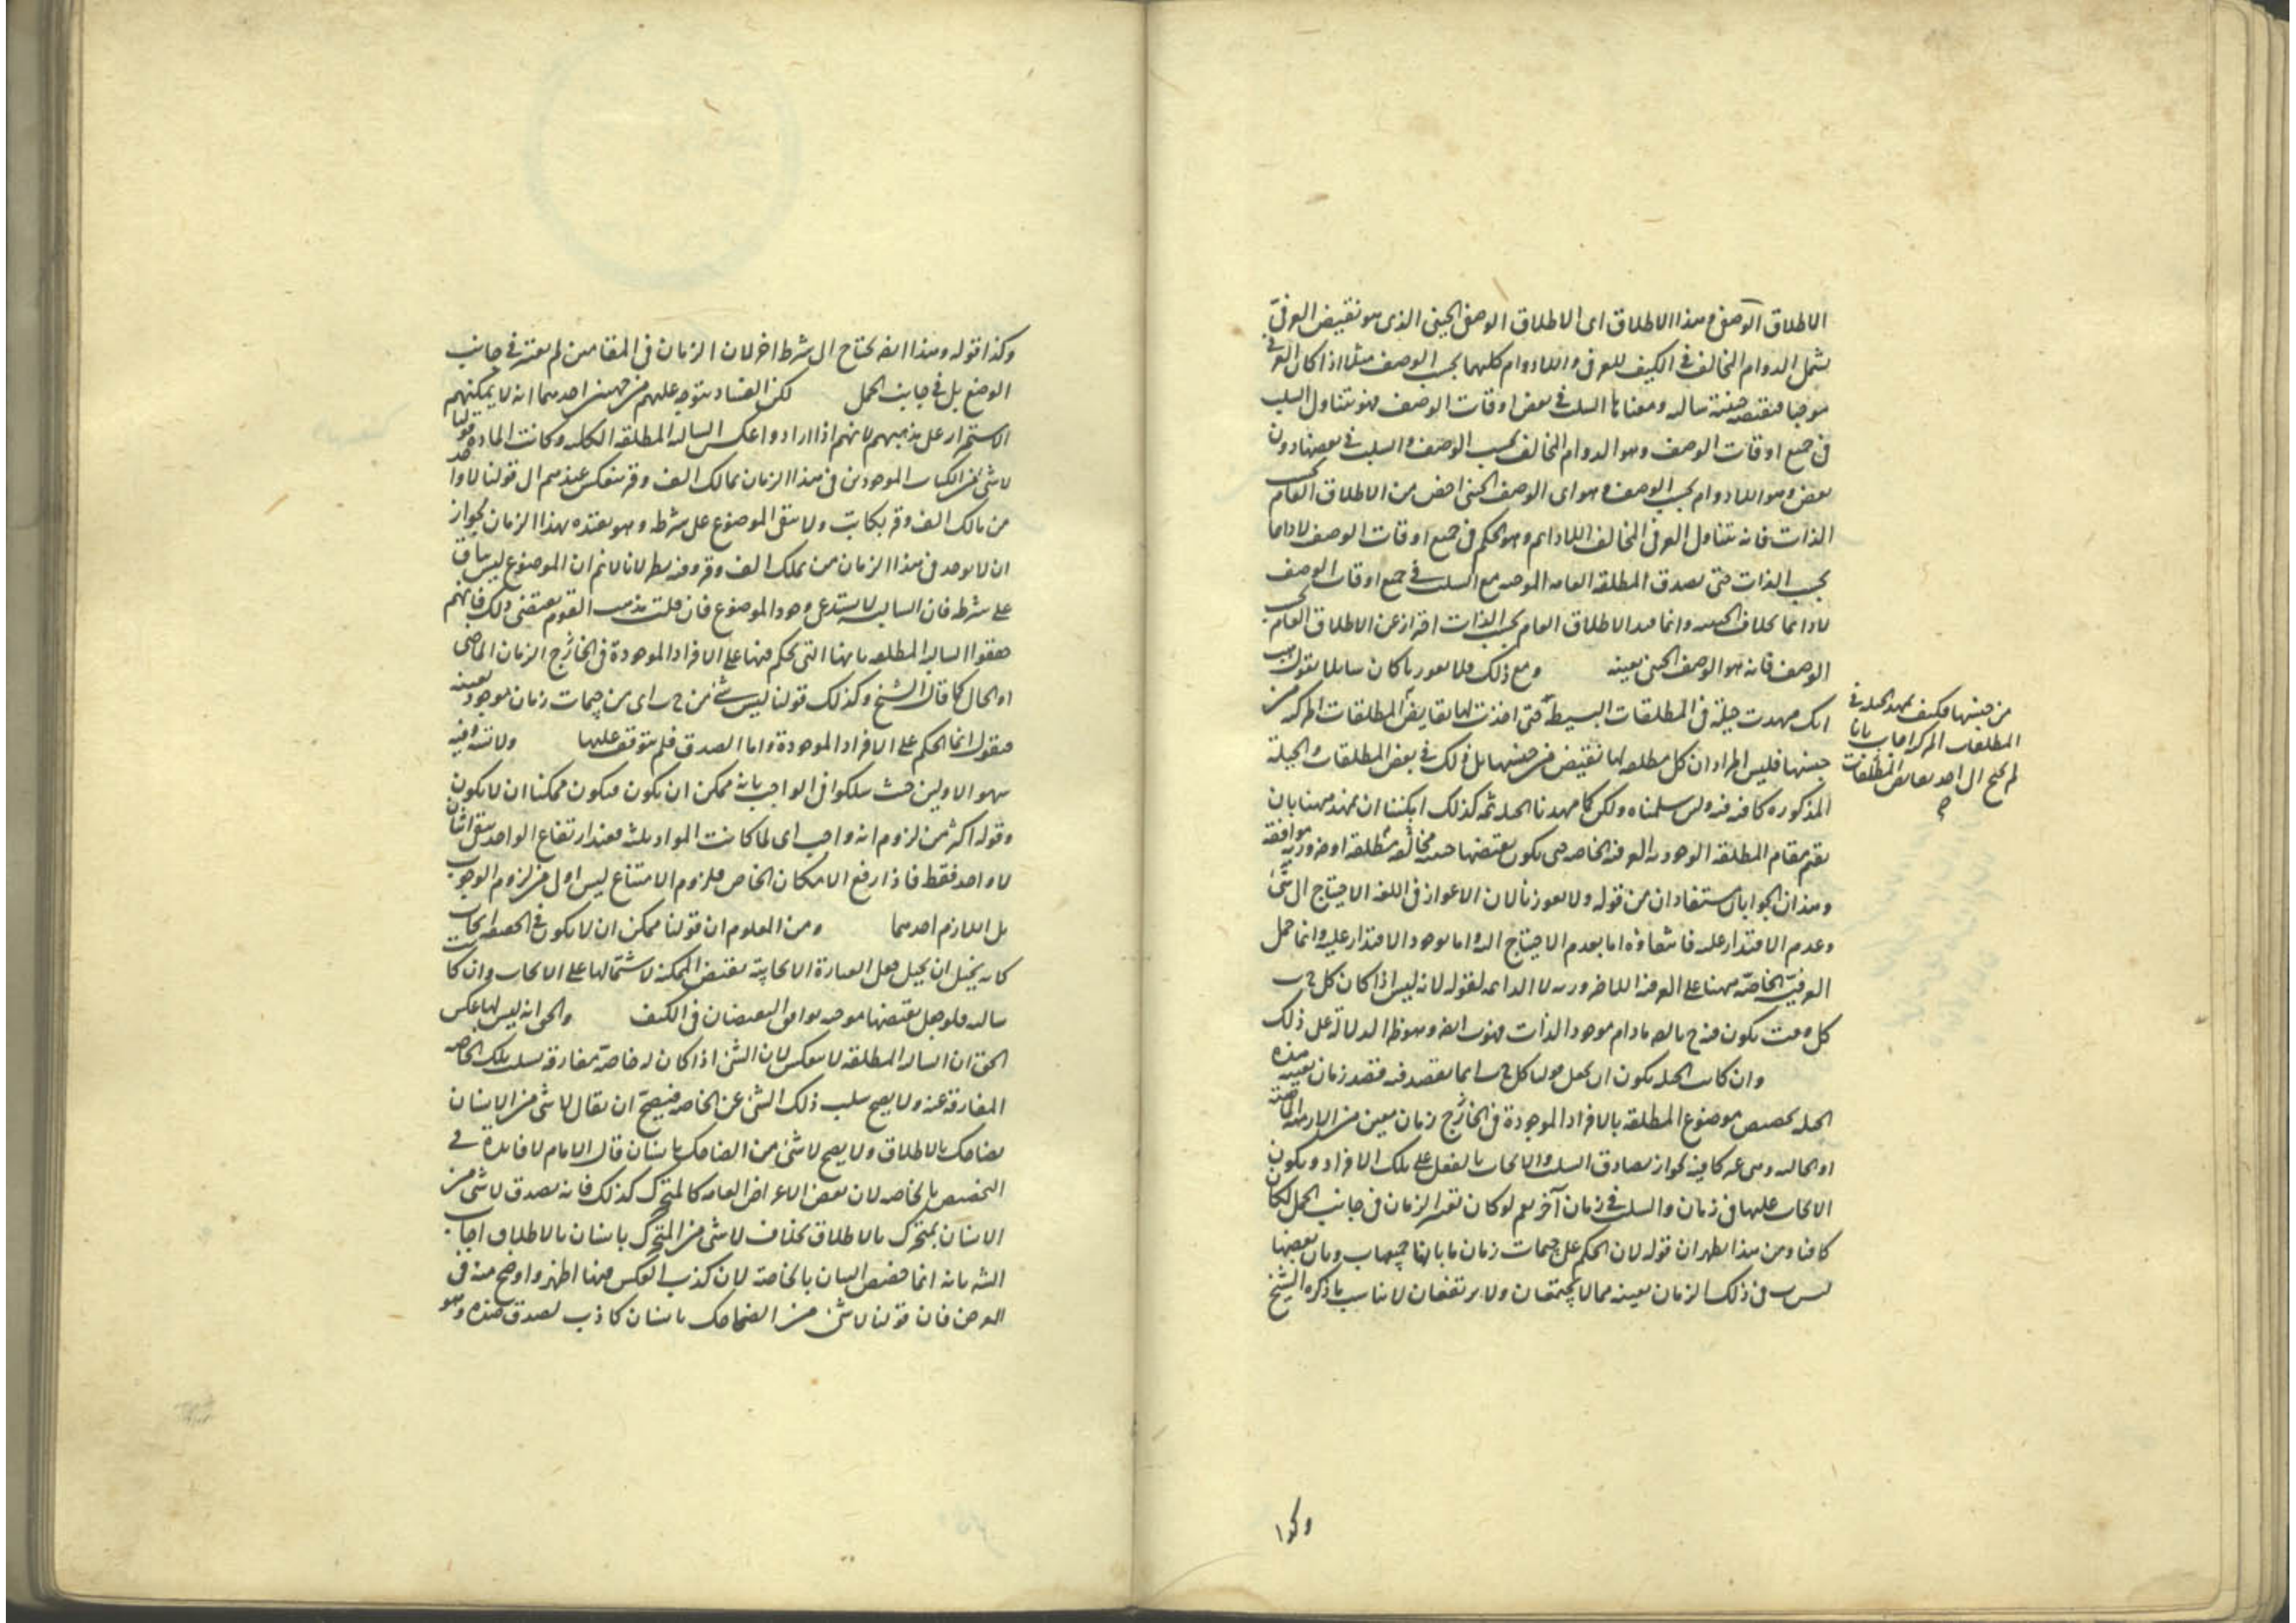 الاطلاق الوصفى هذا الاطلاق اى الاطلاق الوصفى الحينى الذى هو نقيض العرفى
يشمل الدوام المخالف فى الكيف للعرفى واللادوام كليهما بحسب الوصف مثلا اذا كان العرفى
موجبا فنقيضه حينية سالبه ومعناها السلب فى بعض اوقات الوصف فهو يتناول السلب
فى جميع اوقات الوصف وهو الدوام المخالف بحسب الوصف والسلب فى بعضها دون
بعض وهو اللادوام بحسب الوصف وهو اى الوصف الحينى اخص من الاطلاق العام بحسب
الذات فانه يتناول العرفى المخالف اللادايم وهو الحكم فى جميع اوقات الوصف لادايما
بحسب الذات حتى يصدق المطلقه العامه الموجبه مع السلب فى جميع اوقات الوصف
لادائما بخلاف الحينيه وانما قيد الاطلاق العام بحسب الذات احترازا عن الاطلاق العام بحسب
الوصف فانه هو الوصف الحينى بعينه ومع ذلك فلا يعوزنا كان سايلا يقول هب
انك مهدت حيلة فى المطلقات البسيطة حتى اخذت لها نقايض المطلقات المركبه من
جنسها فليس المراد ان كل مطلقه لها نقيض من جنسها بل ذلك فى بعض المطلقات والحيلة
المذكوره كافيه فيه ولئن سلمناه ولكن كما مهدنا الحيله ثمه كذلك امكننا ان نمهد ههنا بان
نقيم مقام المطلقه الوجوديه العرفيه الخاصه حتى يكون نقيضها حينيه مخالفه مطلقه او ضروريه موافقه
وهذان الجوابان مستفادان من قوله ولا يعوزنا لان الاعواز فى اللغه الاحتياج الى شئ
وعدم الاقتدار عليه فانتفاؤه اما بعدم الاحتياج اليه واما بوجود الاقتدار عليه وانما حمل
العرفية الخاصة ههنا على العرفيه اللاضروريه لا الدايمه لقوله لانه ليس اذا كان كل ج ب
كل وقت يكون فيه ج بالضروره ما دام موجود الذات فهو ب بالضروره وهو ظاهر الدلالة على ذلك
وان كانت الحيله يكون ان يجعل قولنا كل ج ب انما يقصد فيه قصد زمان بعينه هذه
الحيله تخصيص موضوع المطلقه بالافراد الموجودة فى الخارج زمان معين من الازمنه الماضية
او الحاليه وهى غير كافية لجواز تصادق السلب والايجاب بالفعل على تلك الافراد ويكون
الايجاب عليها فى زمان والسلب فى زمان آخر نعم لو كان تعين الزمان فى جانب الحمل لكان
كافيا ومن هذا يظهر ان قوله لان الحكم على جيمات زمان ما بانها جميعها ب وبان بعضها
ليس ب فى ذلك الزمان بعينه مما لا يجتمعان ولا يرتفعان لا يناسب ما ذكره الشيخ
من جنسها فكيف تمهد الحيله فى
المطلقات المركبه اجاب بانا
لم نحتج الى اخذ نقايض المطلقات
وكذا
وكذا قوله وهذا ايضا يحتاج الى شرط اخر لان الزمان فى المقامين لم يعتبر فى جانب
الوضع بل فى جانب الحمل لكن الفساد يتوجه عليهم من جهتين احدهما انه لا يمكنهم
الاستمرار على مذهبهم لانهم اذا ارادوا عكس السالبه المطلقه الكليه وكانت الماده قولنا
لا شئ من الكتاب الموجودين فى هذا الزمان بمالك الف وقر ينعكس عندهم الى قولنا لا واحد
من مالك الف وقر بكاتب ولا يبقى الموضوع على شرطه وهو تقيده بهذا الزمان لجواز
ان لا يوجد فى هذا الزمان من يملك الف وقر وفيه نظر لانا لا نم ان الموضوع ليس باق
على شرطه فان السالبه لا يستدعى وجود الموضوع فان قلت مذهب القوم يقتضى ذلك فانهم
حققوا السالبه المطلقه بانها التى يحكم فيها على الافراد الموجودة فى الخارج الزمان الماضى
او الحال كما قال الشيخ وكذلك قولنا ليس شئ من ج ب اى من جيمات زمان موجود بعينه
فنقول انما الحكم على الافراد الموجودة واما الصدق فلم يتوقف عليها ولا تنس فيه
سهو الاولين حيث سلكوا فى الواجب بانه ممكن ان يكون فيكون ممكنا ان لا يكون
وقوله اكثر من لزوم انه واجب اى لما كانت المواد ثلثه فعند ارتفاع الواحد يبقى اثنان
لا واحد فقط فاذا رفع الامكان الخاص فلزوم الامتناع ليس اولى من لزوم الوجوب
بل اللازم احدهما ومن المعلوم ان قولنا ممكن ان لا يكون فى الحقيقه ايجاب
كانه يخيل ان يخيل جعل العبارة الايجابية نقيض الممكنه لاشتمالها على الايجاب وان كانت
سالبه فلو جعل نقيضها موجبه توافق النقيضان فى الكيف والحق انه ليس لها عكس
الحق ان السالبه المطلقه لا ينعكس لان الشئ اذا كان له خاصة مفارقة تسلب تلك الخاصه
المفارقة عنه ولا يصح سلب ذلك الشئ عن الخاصه فيصح ان يقال لا شئ من الانسان
بضاحك بالاطلاق ولا يصح لا شئ من الضاحك بانسان قال الامام لا فايدة فى
التخصيص بالخاصه لان بعض الاعراض العامه كالمتحرك كذلك فانه يصدق لا شئ من
الانسان بمتحرك بالاطلاق بخلاف لا شئ من المتحرك بانسان بالاطلاق اجاب
الشه بانه انما خصص البيان بالخاصة لان كذب العكس فيها اظهر واوضح منه فى
العرض فان قولنا لا شئ من الضاحك بانسان كاذب لصدق ضده وهو